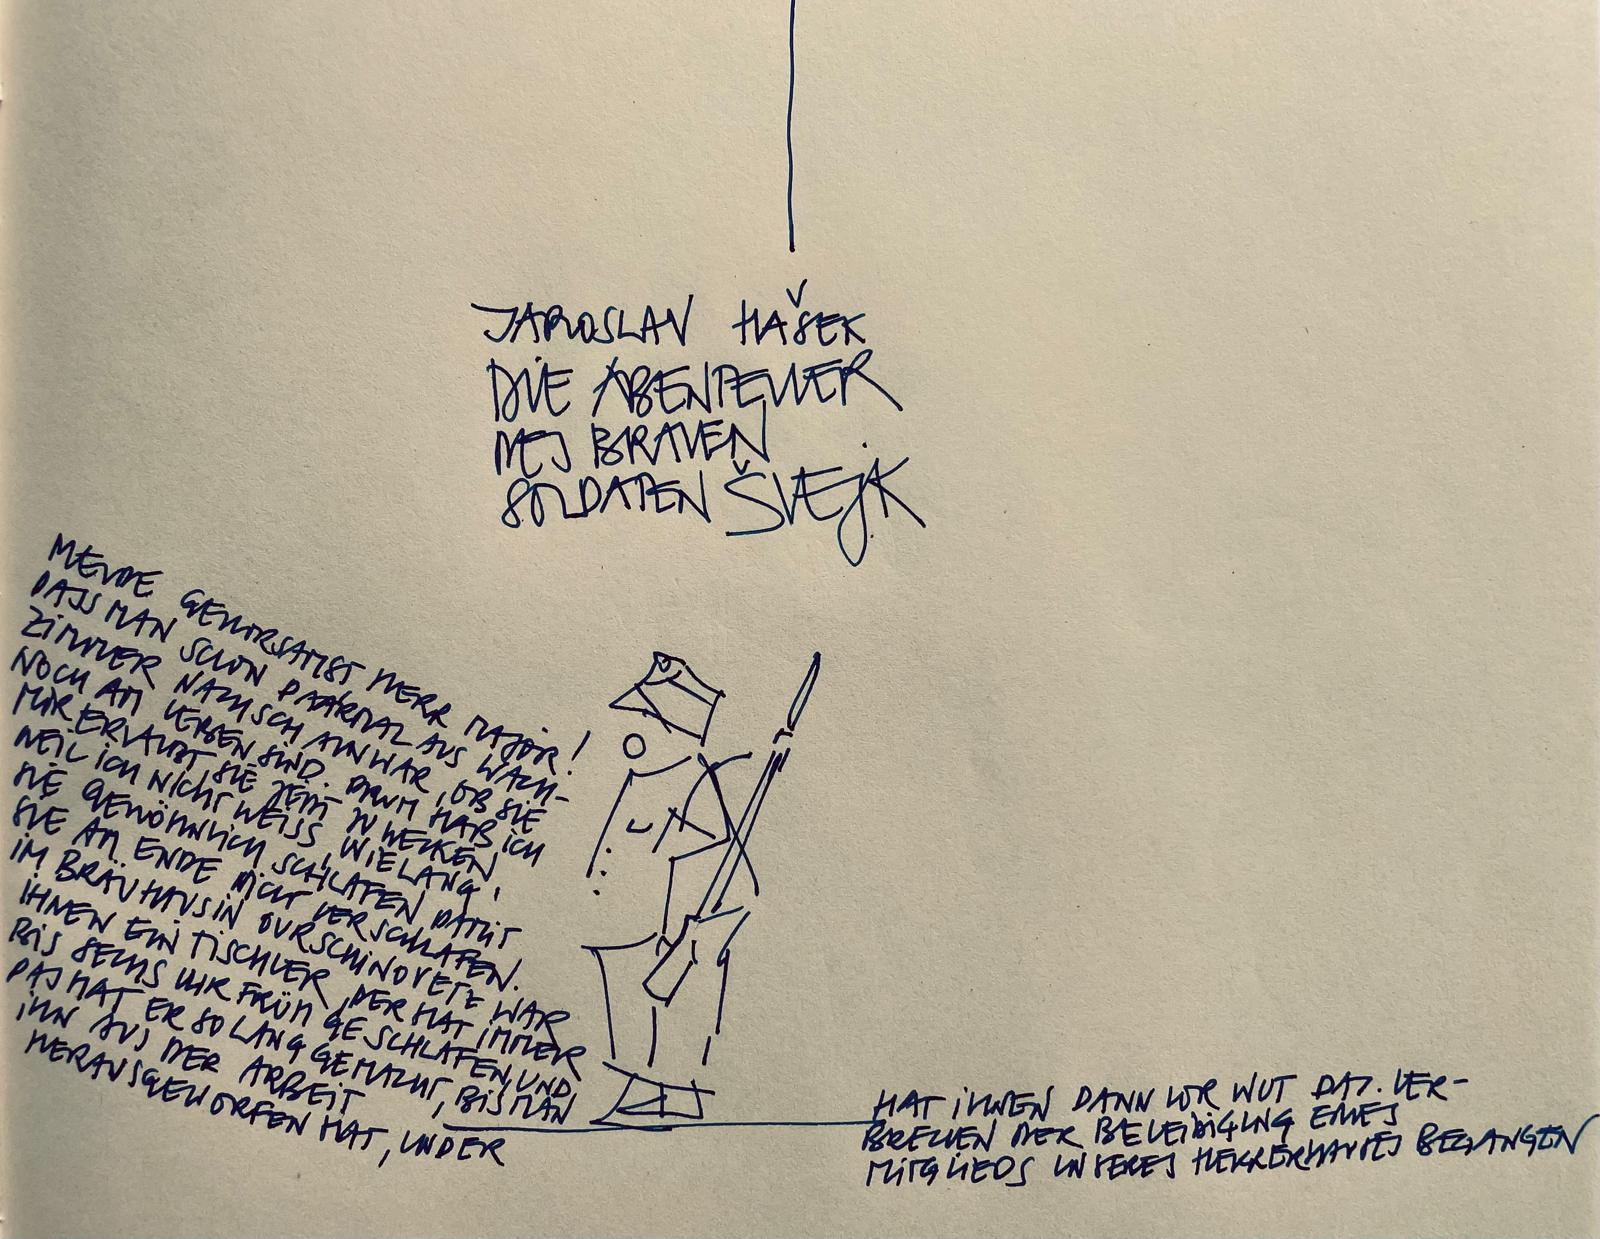 JAROSLAV HAŠEK
DIE ABENTEUER
DES BRAVEN
SOLDATEN ŠVEJK
MELDE GEHORSAMST HERR MAJOR!
DASS MAN SCHON PAARMAL AUS WACH-
ZIMMER NACHSCHAUN WAR, OB SIE
NOCH AM LEBEN SIND. DRUM HAB ICH
MIR ERLAUBT SIE JETZT ZU WECKEN
WEIL ICH NICHT WEISS, WIE LANG,
SIE GEWÖHNLICH SCHLAFEN DAMIT
SIE AM ENDE NICHT VERSCHLAFEN.
IM BRÄUHAUS IN OURSCHINOVETZ WAR
IHNEN EIN TISCHLER, DER HAT IMMER
BIS SECHS UHR FRÜH GESCHLAFEN, UND
DAS HAT ER SO LANG GEMACHT, BIS MAN
IHN AUS DER ARBEIT
HERAUSGEWORFEN HAT, UND ER
HAT IHNEN DANN VOR WUT DAS VER-
BRECHEN DER BELEIDIGUNG EINES
MITGLIEDS UNSERES HERRERHAUSES BEGANGEN